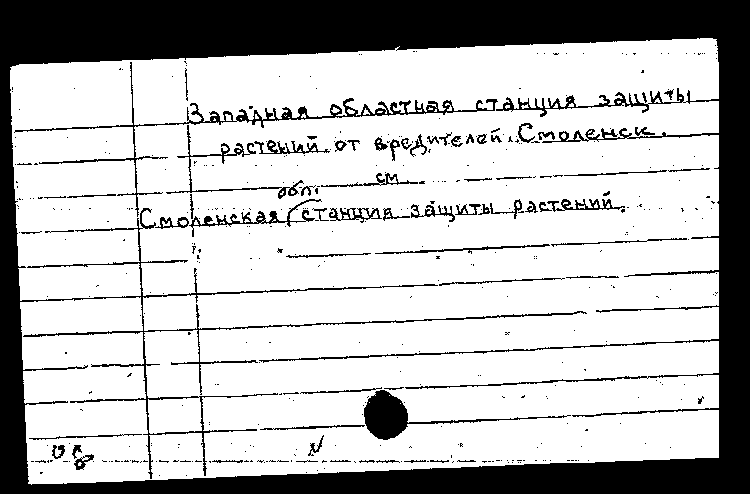 Западная областная станция защиты
растений от вредителей. Смоленск.
см.
обл.
Смоленская станция защиты растений.